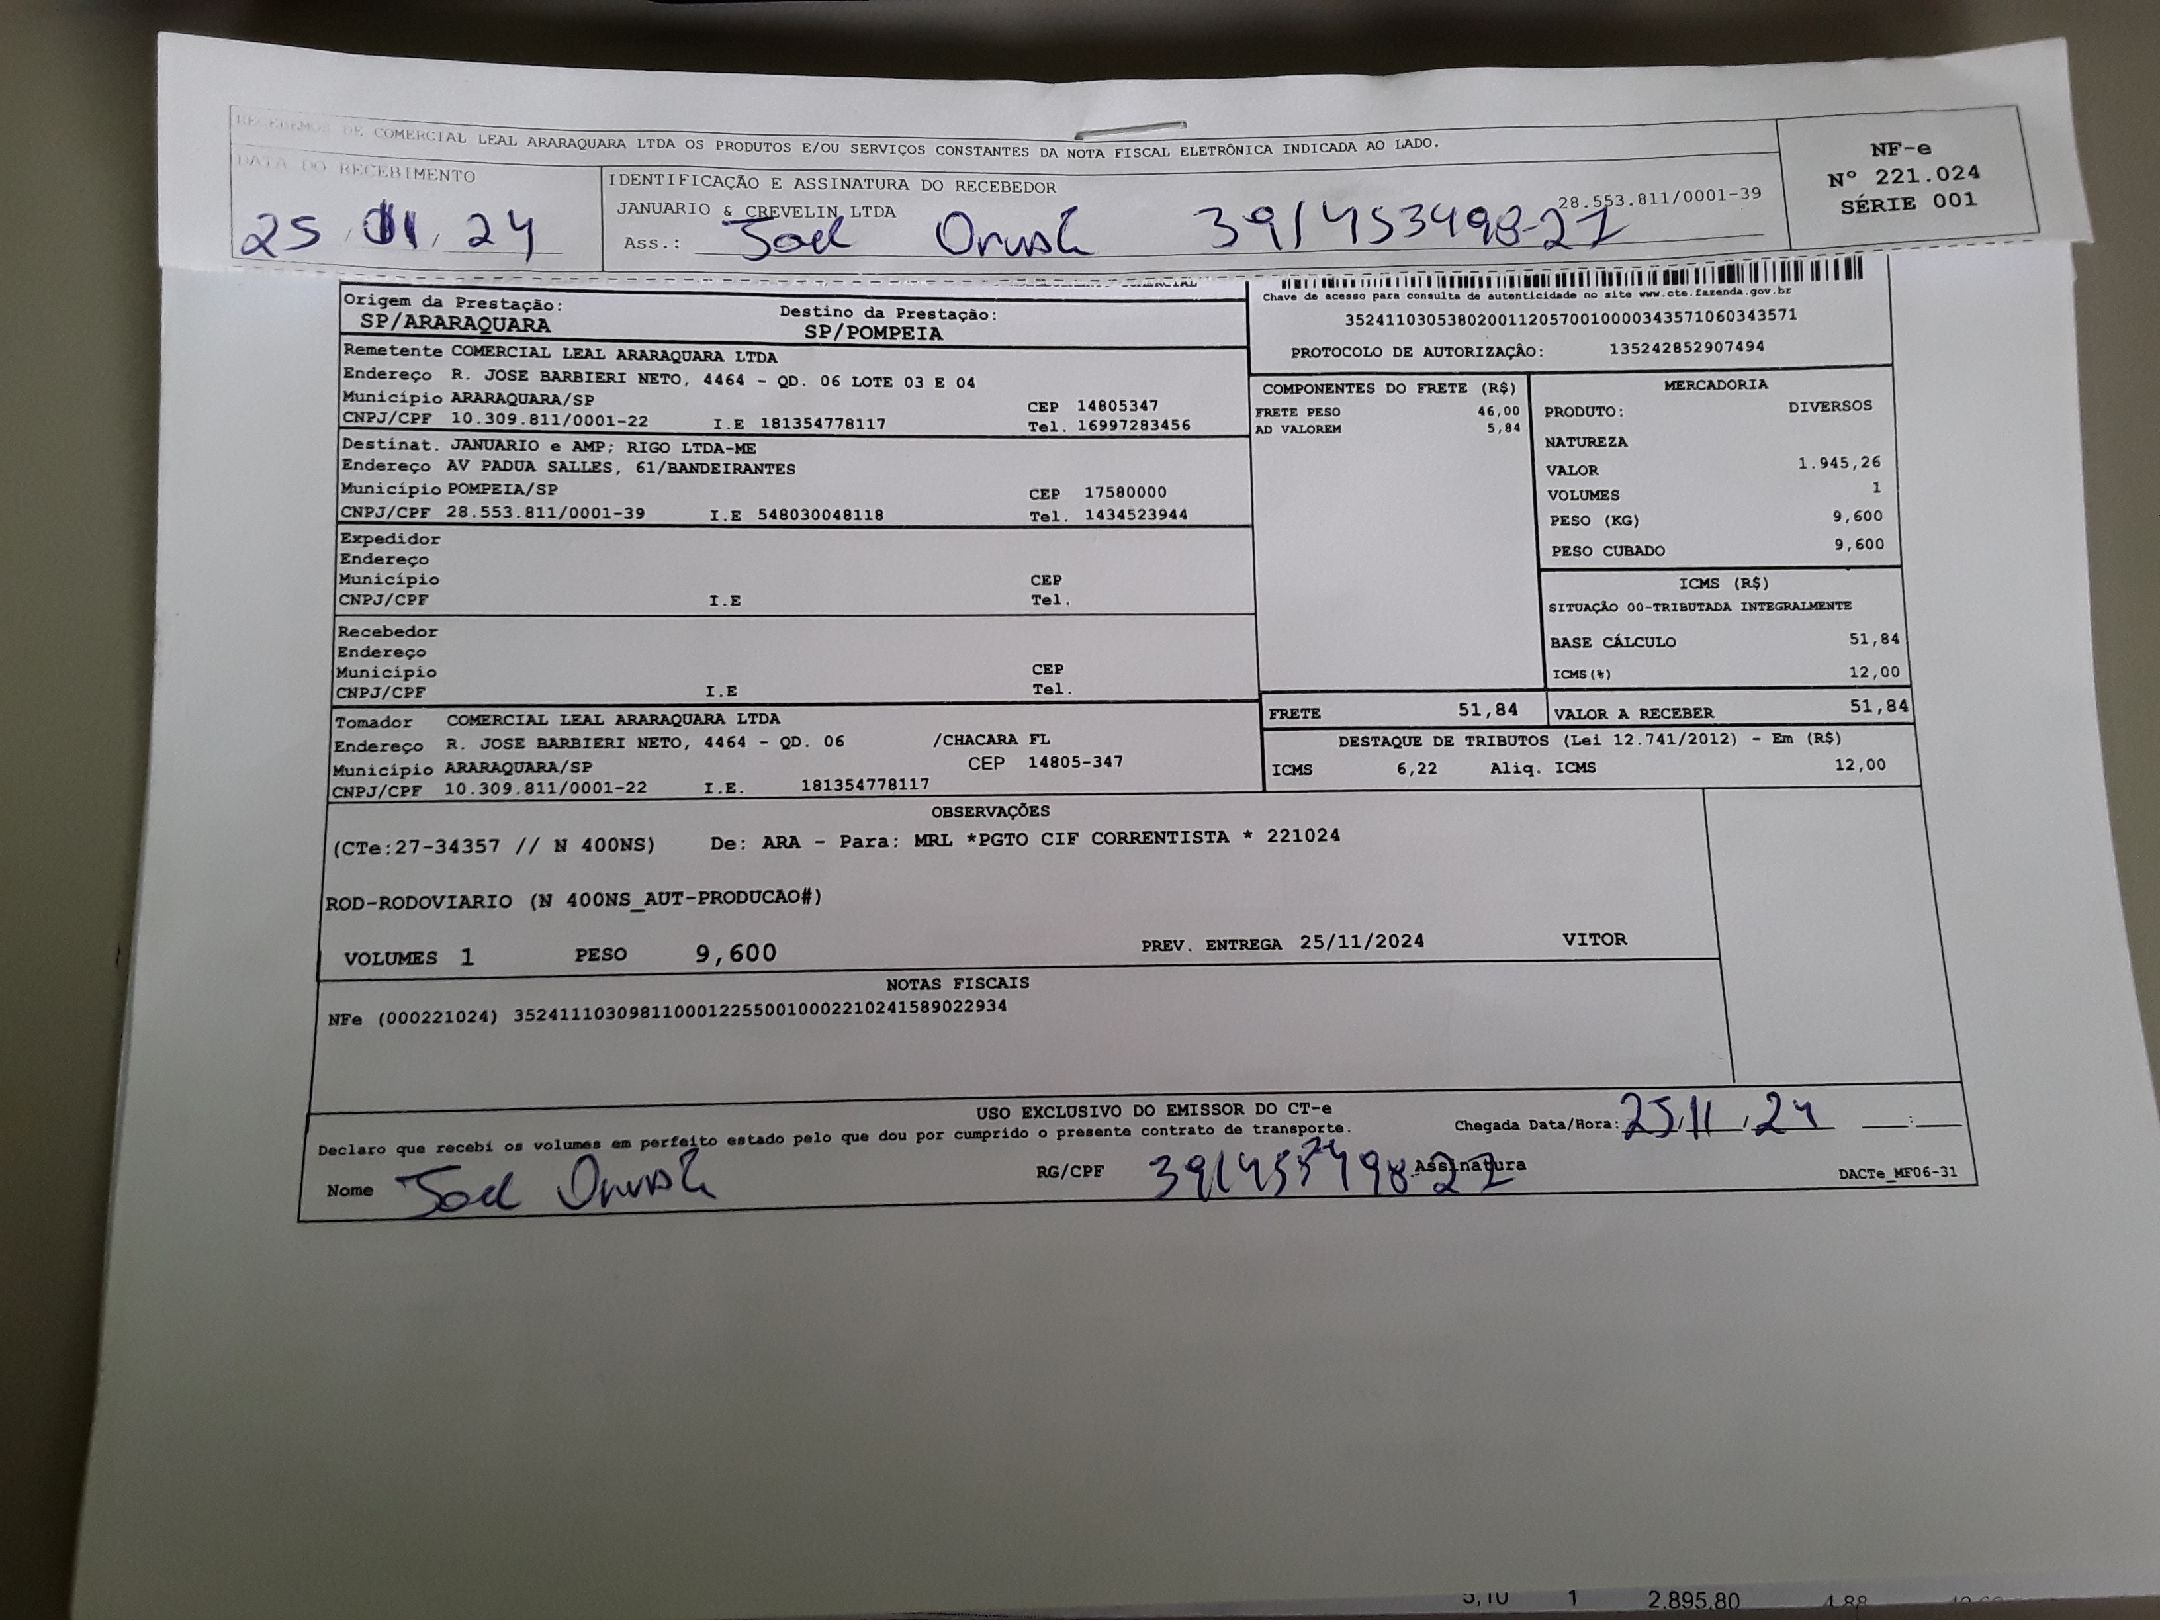 RECEBEMOS DE COMERCIAL LEAL ARARAQUARA LTDA OS PRODUTOS E/OU SERVIÇOS CONSTANTES DA NOTA FISCAL ELETRÔNICA INDICADA AO LADO.
NF-e
Nº 221.024
SÉRIE 001
DATA DO RECEBIMENTO
25 / 11 / 24
IDENTIFICAÇÃO E ASSINATURA DO RECEBEDOR
JANUARIO & CREVELIN LTDA 28.553.811/0001-39
Ass.: Joel
Origem da Prestação: Destino da Prestação:
SP/ARARAQUARA SP/POMPEIA
Chave de acesso para consulta de autenticidade no site www.cte.fazenda.gov.br
35241103053802001120570010000343571060343571
PROTOCOLO DE AUTORIZAÇÃO: 135242852907494
Remetente COMERCIAL LEAL ARARAQUARA LTDA
Endereço R. JOSE BARBIERI NETO, 4464 - QD. 06 LOTE 03 E 04
Município ARARAQUARA/SP CEP 14805347
CNPJ/CPF 10.309.811/0001-22 I.E 181354778117 Tel. 16997283456
Destinat. JANUARIO e AMP; RIGO LTDA-ME
Endereço AV PADUA SALLES, 61/BANDEIRANTES
Município POMPEIA/SP CEP 17580000
CNPJ/CPF 28.553.811/0001-39 I.E 548030048118 Tel. 1434523944
Expedidor
Endereço
Município CEP
CNPJ/CPF I.E Tel.
Recebedor
Endereço
Município CEP
CNPJ/CPF I.E Tel.
Tomador COMERCIAL LEAL ARARAQUARA LTDA
Endereço R. JOSE BARBIERI NETO, 4464 - QD. 06 /CHACARA FL
Município ARARAQUARA/SP CEP 14805-347
CNPJ/CPF 10.309.811/0001-22 I.E. 181354778117
COMPONENTES DO FRETE (R$)
FRETE PESO 46,00
AD VALOREM 5,84
MERCADORIA
PRODUTO: DIVERSOS
NATUREZA
VALOR 1.945,26
VOLUMES 1
PESO (KG) 9,600
PESO CUBADO 9,600
ICMS (R$)
SITUAÇÃO 00-TRIBUTADA INTEGRALMENTE
BASE CÁLCULO 51,84
ICMS(%) 12,00
FRETE 51,84 VALOR A RECEBER 51,84
DESTAQUE DE TRIBUTOS (Lei 12.741/2012) - Em (R$)
ICMS 6,22 Aliq. ICMS 12,00
OBSERVAÇÕES
(CTe:27-34357 // N 400NS) De: ARA - Para: MRL *PGTO CIF CORRENTISTA * 221024
ROD-RODOVIARIO (N 400NS_AUT-PRODUCAO#)
VOLUMES 1 PESO 9,600 PREV. ENTREGA 25/11/2024 VITOR
NOTAS FISCAIS
NFe (000221024) 35241110309811000122550010002210241589022934
USO EXCLUSIVO DO EMISSOR DO CT-e
Declaro que recebi os volumes em perfeito estado pelo que dou por cumprido o presente contrato de transporte. Chegada Data/Hora: 25/11/24 __:__
Nome Joel RG/CPF Assinatura DACTe_MF06-31
2.895,80